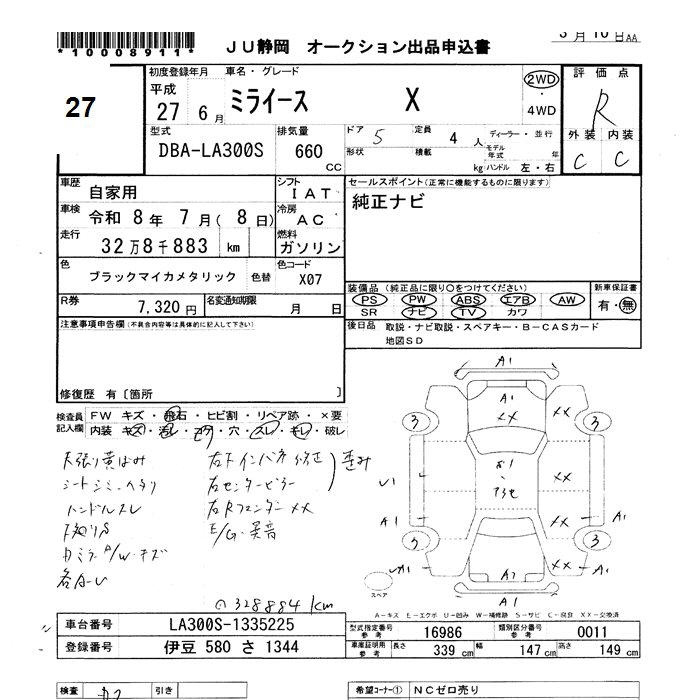 *10008911*
JU静岡 オークション出品申込書
月 日AA
27
初度登録年月 車名・グレード
平成
27 6月 ミライース X
2WD
・
4WD
評価点
R
外装 内装
C C
型式 排気量
DBA-LA300S 660 CC
ドア 5 定員 4人 ディーラー・並行
形状 積載 kg モデル年式 年
ハンドル 左・右
車歴 自家用
シフト IAT
車検 令和 8年 7月( 8日)
冷房 AC
走行 32万8千883 km
燃料 ガソリン
色 ブラックマイカメタリック 色替
色コード X07
R券 7,320円 名変通知期限 月 日
セールスポイント(正常に機能するものに限ります)
純正ナビ
装備品(純正品に限り○をつけてください)
PS PW ABS エアB AW
SR ナビ TV カワ
新車保証書
有・無
後日品 取説・ナビ取説・スペアキー・B-CASカード
地図SD
注意事項申告欄(不具合内容等は具体的に記入して下さい)
修復歴 有〔箇所 〕
検査員 FW キズ・飛石・ヒビ割・リペア跡・×要
記入欄 内装 キズ・汚レ・コゲ・穴・スレ・キレ・破レ
天張り黄ばみ
シートシミ・ヘタリ
ハンドルスレ
下廻りS
カミラーP/W・キズ
各A・U
右Fインパネ修正
右センターピラー
歪み
右Rフェンダー××
E/G・異音
328884 km
A1
A1
××
××
3
3
××
A1
A1
××
3
A1
××
A1
A2
A1
スペア
A-キズ E-エクボ U-凹み W-補修跡 S-サビ C-腐食 XX-交換済
車台番号 LA300S-1335225
登録番号 伊豆 580 さ 1344
型式指定番号 参考 16986 類別区分番号 参考 0011
車庫証明用 参考 長さ 339 cm 幅 147 cm 高さ 149 cm
検査 引き
希望コーナー① NCゼロ売り